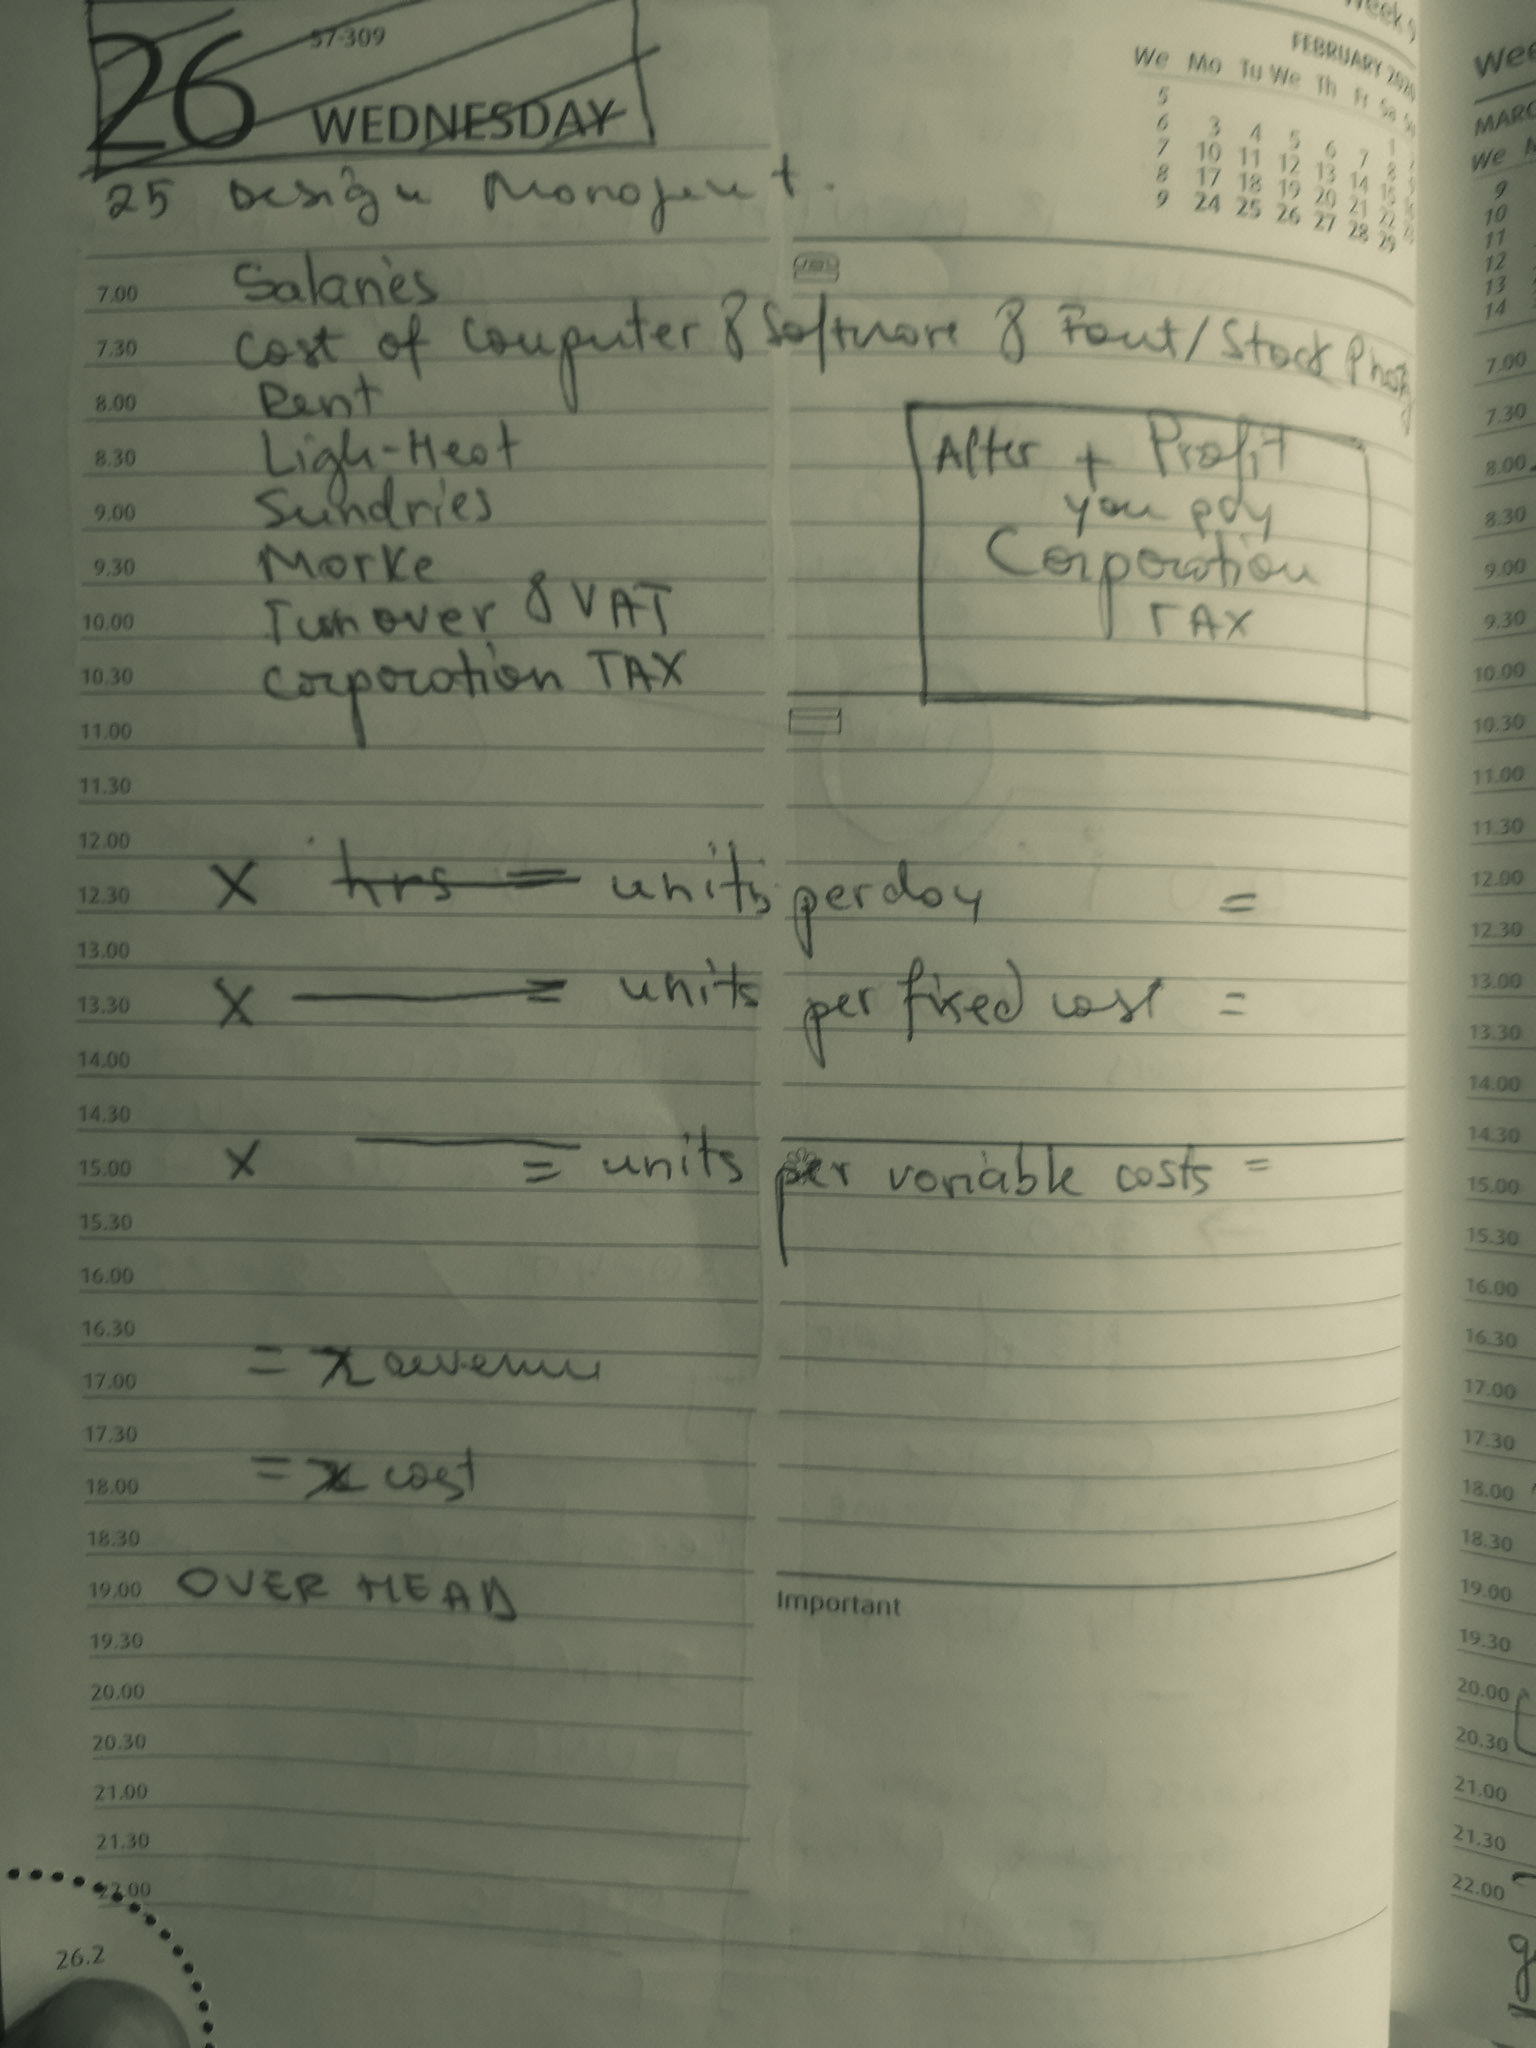 57-309
26 WEDNESDAY
Week 9
FEBRUARY 2020
We Mo Tu We Th Fr Sa Su
5 1 2
6 3 4 5 6 7 8
7 10 11 12 13 14 15
8 17 18 19 20 21 22
9 24 25 26 27 28 29
25 Design
7.00 Salaries
7.30 Cost of Computer & Software & Font/Stock Photos
8.00 Rent
8.30 Ligh-Heat
9.00 Sundries
9.30 Marke
10.00 Turnover & VAT
10.30 Corporation TAX
After + Profit
you pay
Corporation
TAX
11.00
11.30
12.00
12.30 X hrs = units per day =
13.00
13.30 X = units per fixed cost =
14.00
14.30
15.00 X = units per variable costs =
15.30
16.00
16.30
17.00 =
17.30
18.00 = x cost
18.30
19.00 OVER HEAD
Important
19.30
20.00
20.30
21.00
21.30
22.00
26.2
Wee
MARC
We M
9
10
11
12
13
14
7.00
7.30
8.00
8.30
9.00
9.30
10.00
10.30
11.00
11.30
12.00
12.30
13.00
13.30
14.00
14.30
15.00
15.30
16.00
16.30
17.00
17.30
18.00
18.30
19.00
19.30
20.00
20.30
21.00
21.30
22.00